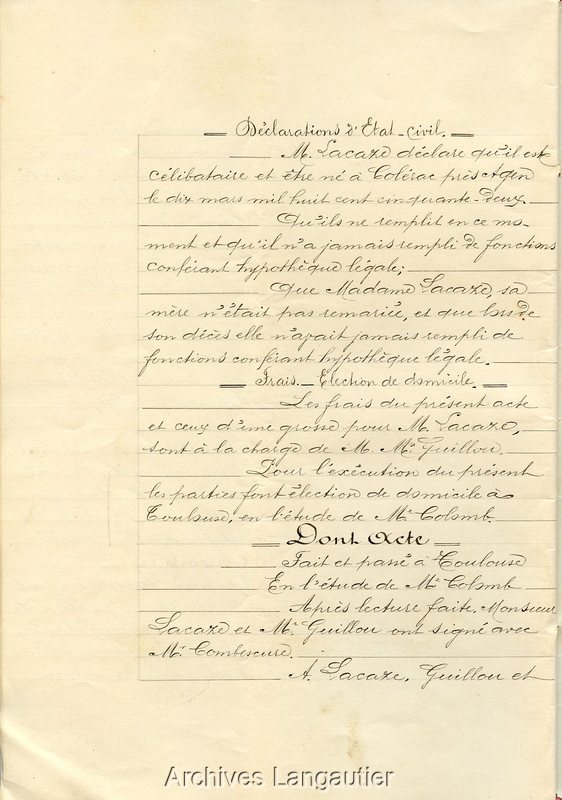 Déclarations d'Etat-civil.
M. Lacaze déclare qu'il est
célibataire et être né à près Agen
le dix mars mil huit cent cinquante-deux.
Qu'ils ne remplit en ce mo-
ment et qu'il n'a jamais rempli de fonctions
conférant hypothèque légale;
Que Madame Lacaze, sa
mère n'était pas remariée, et que lors de
son décès elle n'avait jamais rempli de
fonctions conférant hypothèque légale.
Frais._ Election de domicile.
Les frais du présent acte
et ceux d'une grosse pour M. Lacaze,
sont à la charge de M. Me Guillou.
Pour l'exécution du présent
les parties font élection de domicile à
Toulouse, en l'étude de Me Colomb
Dont Acte
Fait et passé à Toulouse
En l'étude de Me Colomb
Après lecture faite, Monsieur
Lacaze et Me Guillou ont signé avec
Me Combescure.
A. Lacaze, Guillou et
Archives Langautier